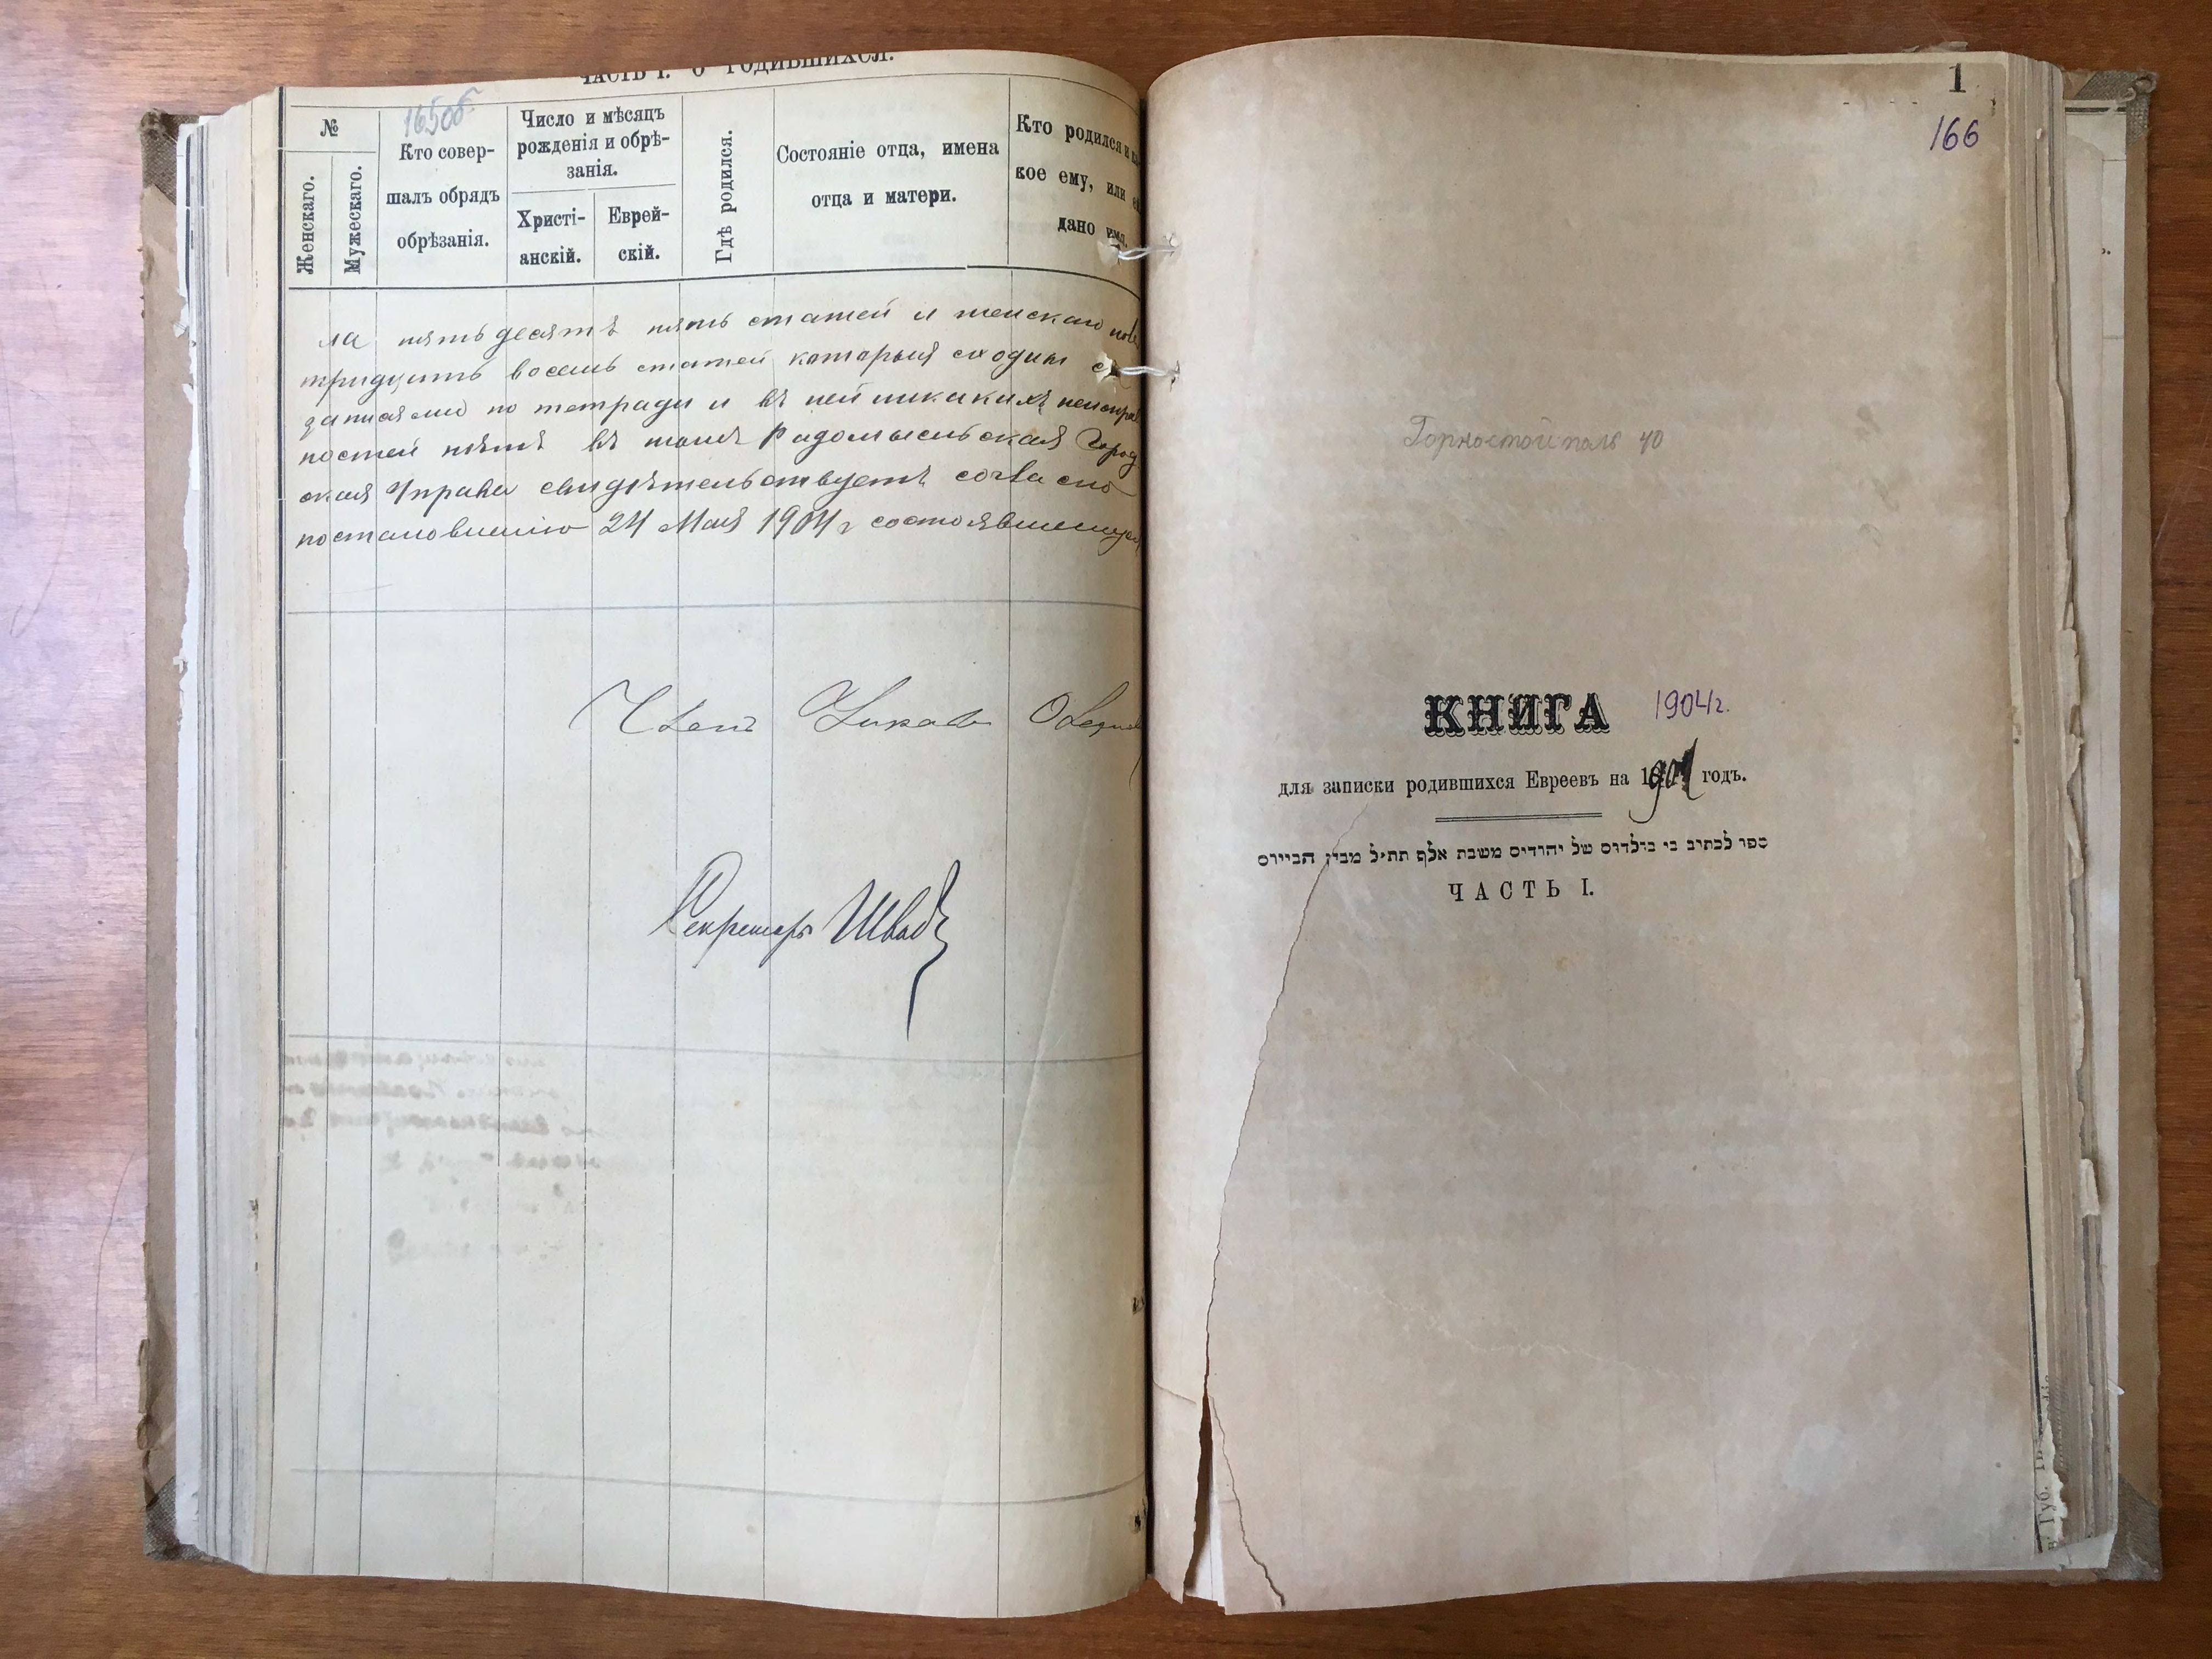 ЧАСТЬ I. О РОДИВШИХСЯ.
165об
№
Женскаго.
Мужескаго.
Кто совер-
шалъ обрядъ
обрѣзанія.
Число и мѣсяцъ
рожденія и обрѣ-
занія.
Христі-
анскій.
Еврей-
скій.
Гдѣ родился.
Состояніе отца, имена
отца и матери.
Кто родился и ка
кое ему, или е
дано имя.
ла пятьдесятъ пять статей и женскаго пола
тридцать восемь статей которыя сходны съ
записями по тетради и въ ней никакихъ неисправ
ностей нѣтъ въ томъ Радомысльская Город
ская Управа свидѣтельствуетъ согласно
постановленію 24 Мая 1904 г состоявшемуся
Членъ
Секретарь Швабъ
1
166
Горностайполь 40
КНИГА 1904г.
для записки родившихся Евреевъ на 1904 годъ.
ספר לכתיב בי נולדים של יהודים משנת אלף תת״ל מבין הביירים
ЧАСТЬ I.